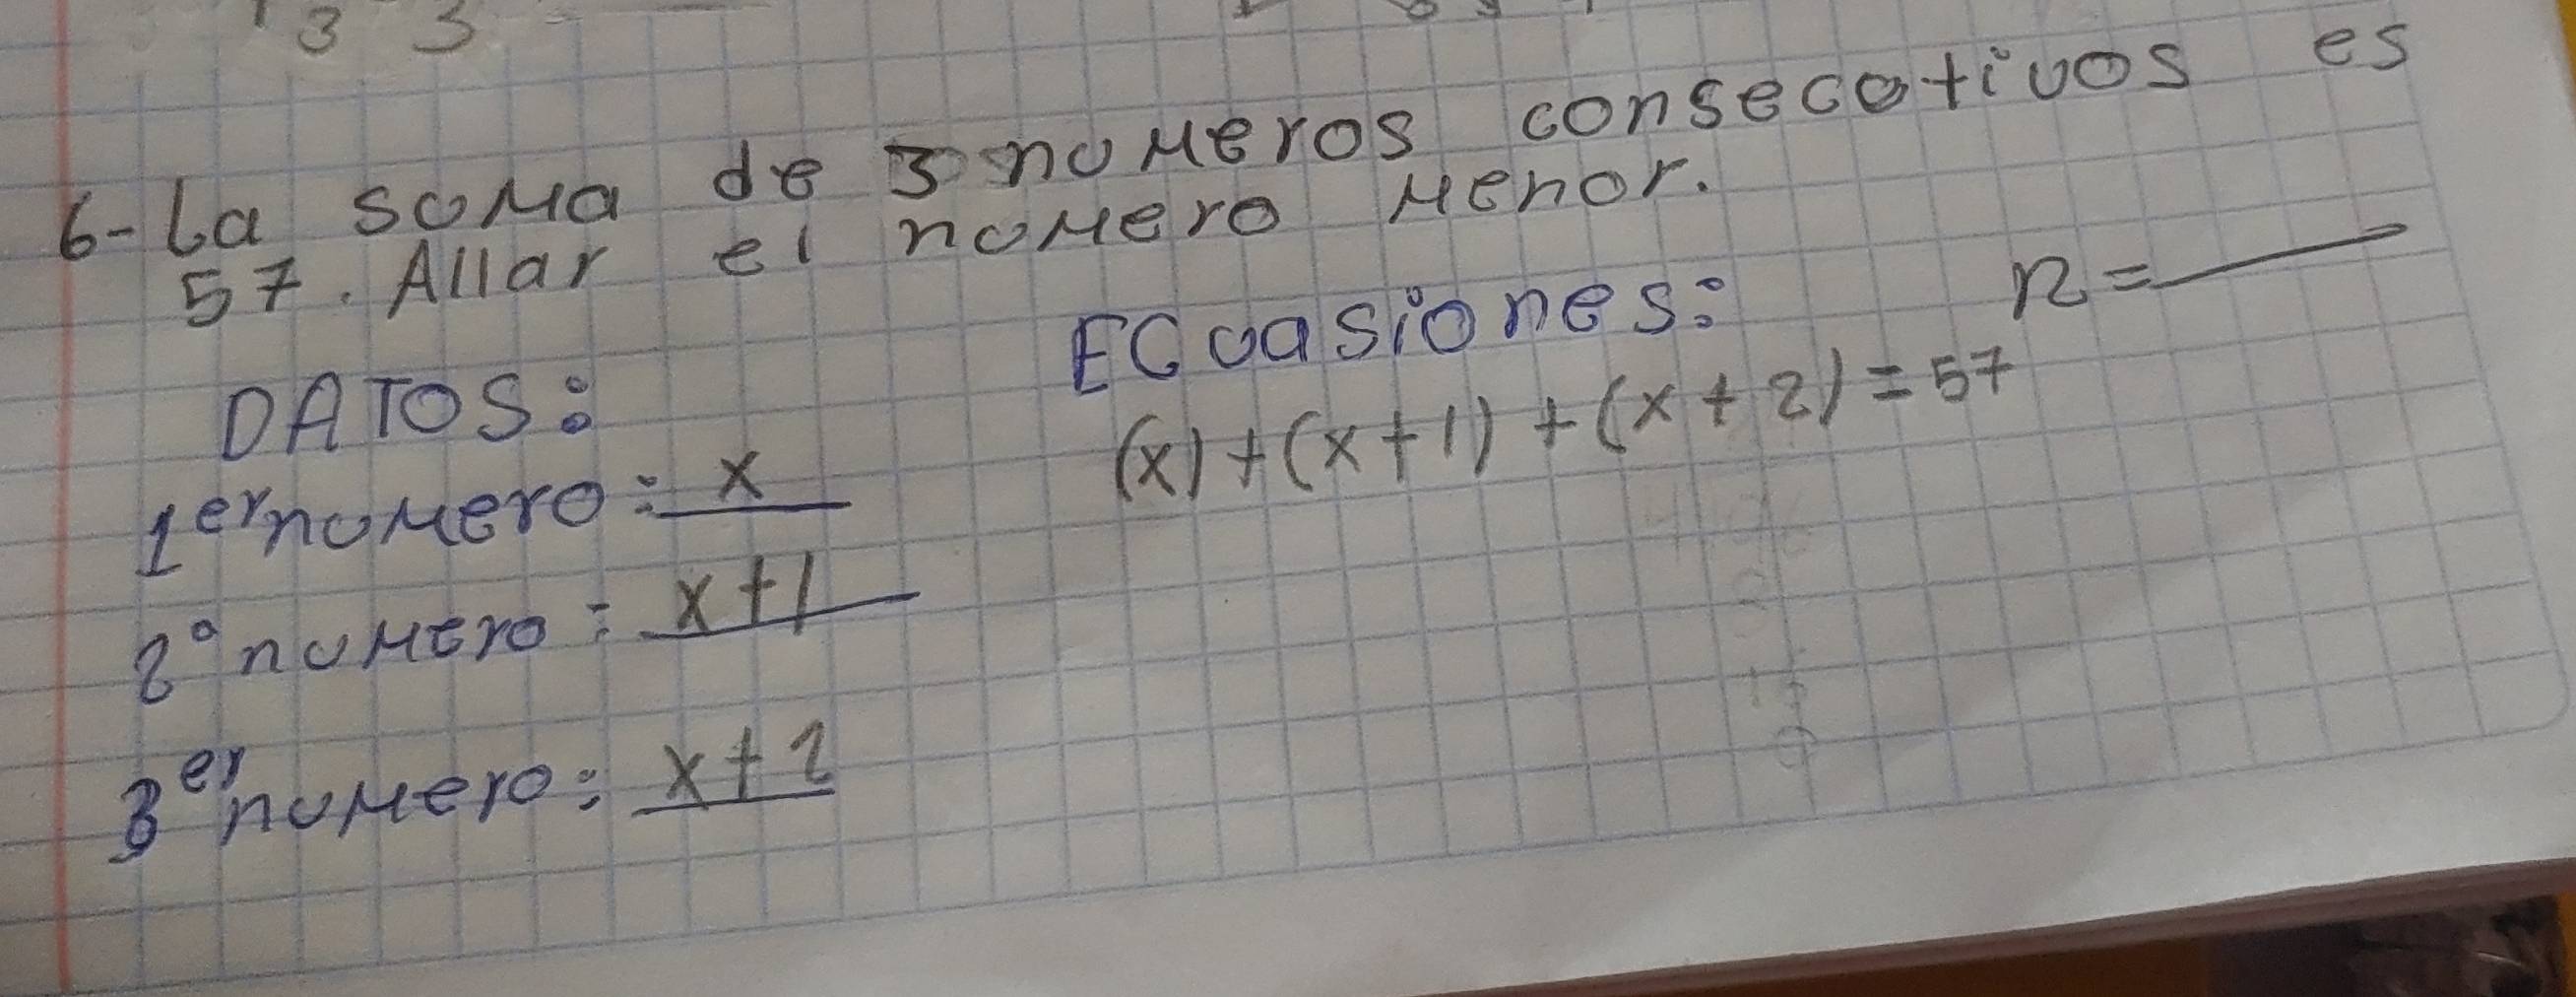 3 3
6- La suma de 3 numeros consecutivos es
57. Allar el numero menor.
R=
DATOS:
Ecuasiones:
1er numero: x
(x)+(x+1)+(x+2)=57
2° numero: x+1
3er numero: x+2